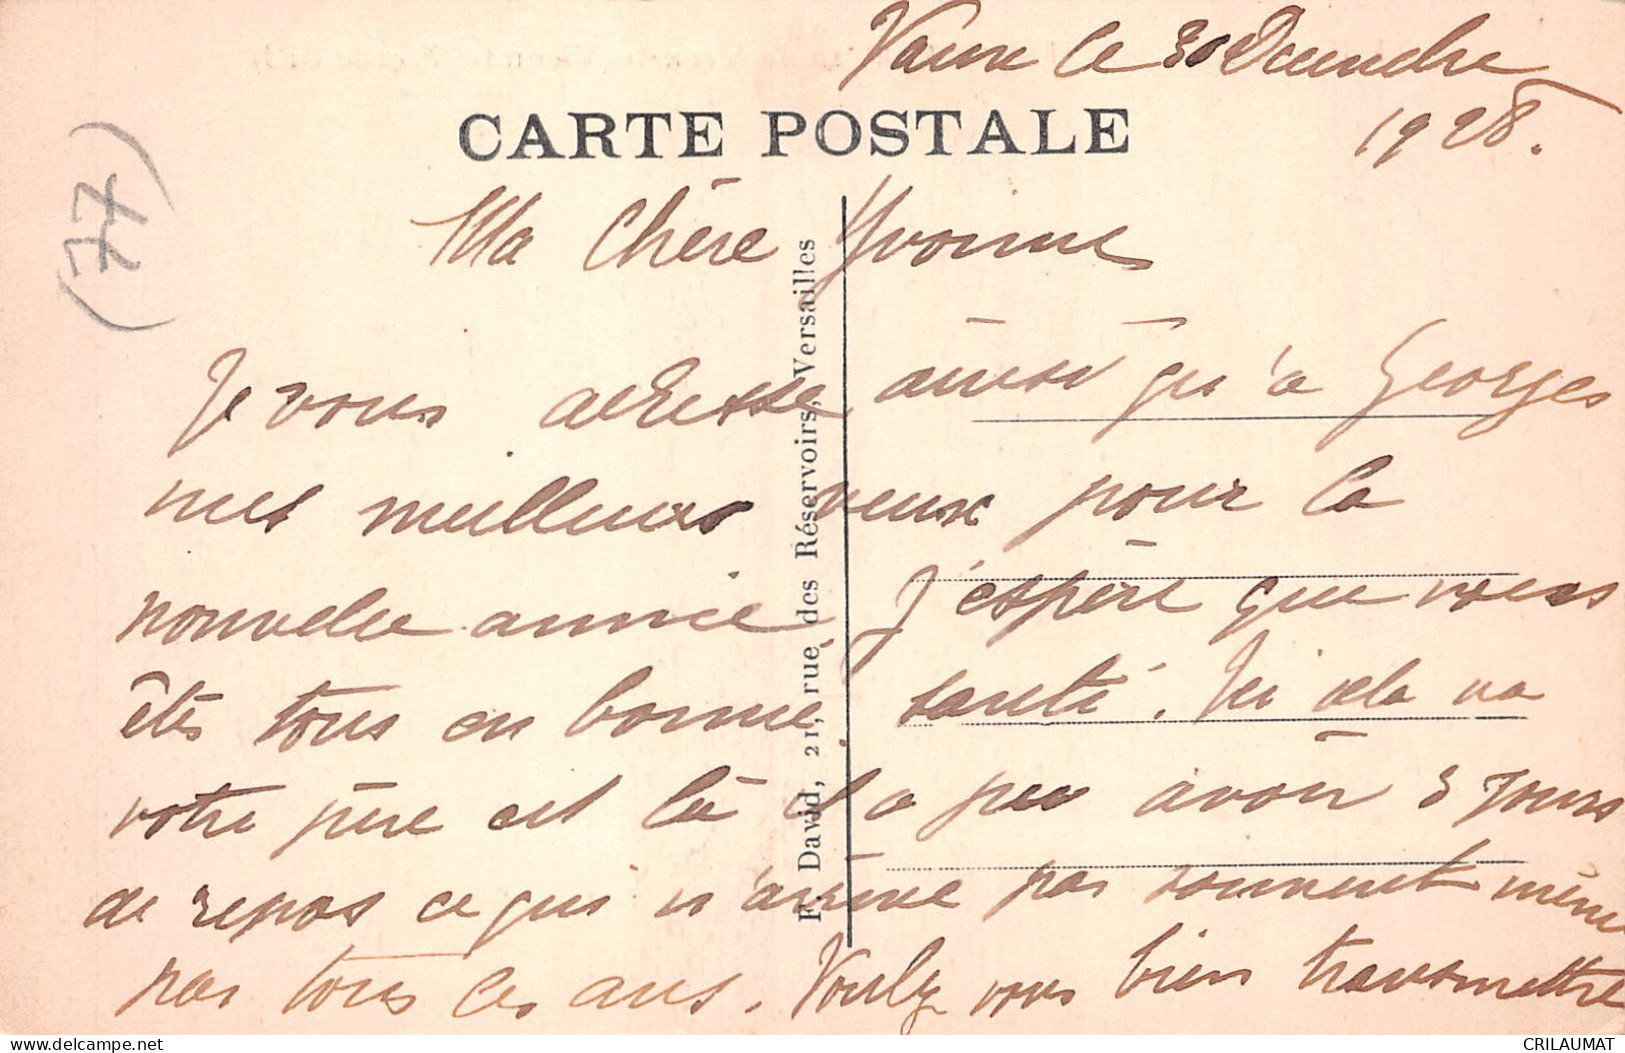 Vaux le 30 Decembre
CARTE POSTALE
1928.
(77)
Ma Chère Yvonne
Je vous adresse ainsi qu'à Georges
mes meilleurs veux pour la
nouvelle année J'espère que vous
êtes tous en bonne santé. Ici cela va
votre père est là il a peu avoir 3 jours
de repos ce qui n'arrive pas souvent même
pas tous les ans. Voulez vous bien transmettre
F. David, 21, rue des Réservoirs, Versailles
CRILAUMAT